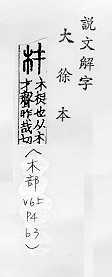 說文解字
大徐本
材
木梃也从木
才聲昨哉切
(木部
v6上
P4
b3)